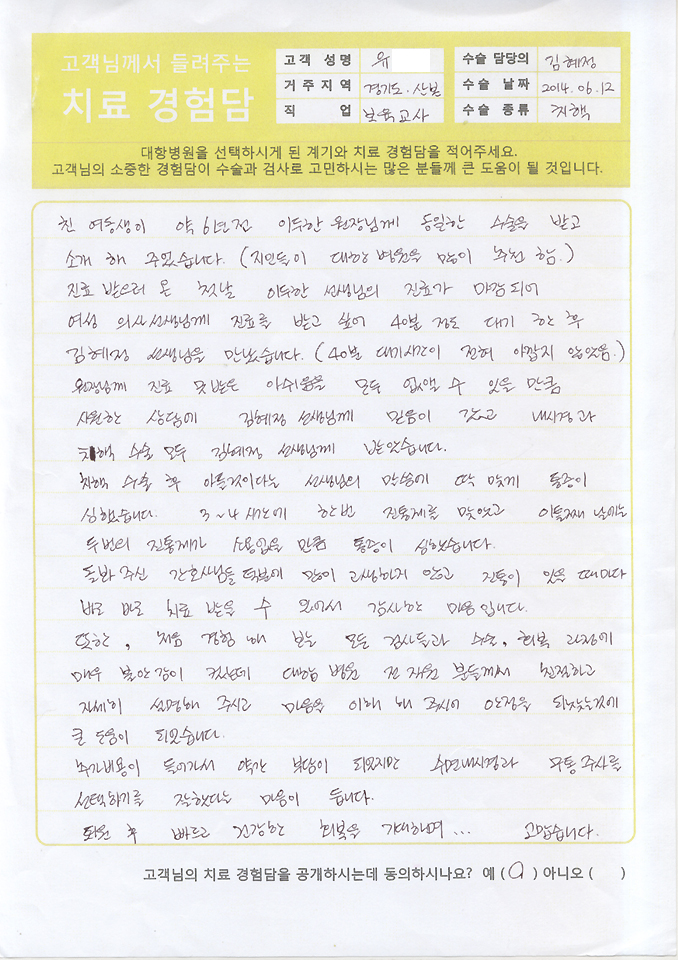 고객님께서 들려주는
치료 경험담
고객 성명 유
거주지역 경기도. 산본
직 업 보육교사
수술 담당의 김혜정
수술 날짜 2014. 06. 12
수술 종류 치핵
대항병원을 선택하시게 된 계기와 치료 경험담을 적어주세요.
고객님의 소중한 경험담이 수술과 검사로 고민하시는 많은 분들께 큰 도움이 될 것입니다.
친 여동생이 약 6년전 이두한 원장님께 동일한 수술을 받고
소개 해 주었습니다. (지인들이 대항병원을 많이 추천 함.)
진료 받으러 온 첫날 이두한 선생님의 진료가 마감되어
여성 의사선생님께 진료를 받고 싶어 40분 정도 대기 한 후
김혜정 선생님을 만났습니다. (40분 대기시간이 전혀 아깝지 않았음.)
원장님께 진료 못받은 아쉬움을 모두 없앨 수 있을 만큼
시원한 상담에 김혜정 선생님께 믿음이 갔고 내시경과
치핵 수술 모두 김혜정 선생님께 받았습니다.
치핵 수술 후 아플것이다는 선생님의 말씀에 딱 맞게 통증이
심했습니다. 3~4시간에 한번 진통제를 맞았고 이틀째 날에는
두번의 진통제가 소용없을 만큼 통증이 심했습니다.
돌봐 주신 간호사님들 덕분에 많이 고생하지 않고 진통이 있을 때마다
바로 바로 치료 받을 수 있어서 감사한 마음입니다.
또한, 처음 경험 해 보는 모든 검사들과 수술, 회복 과정에
매우 불안감이 컸는데 대항 병원 전 직원 분들께서 친절하고
자세히 설명해 주시고 마음을 이해 해 주시어 안정을 되찾는것에
큰 도움이 되었습니다.
추가비용이 들어가서 약간 부담이 되었지만 수면내시경과 무통주사를
선택하기를 잘했다는 마음이 듭니다.
퇴원 후 빠르고 건강한 회복을 기대하며... 고맙습니다.
고객님의 치료 경험담을 공개하시는데 동의하시나요? 예 ( ) 아니오 ( )